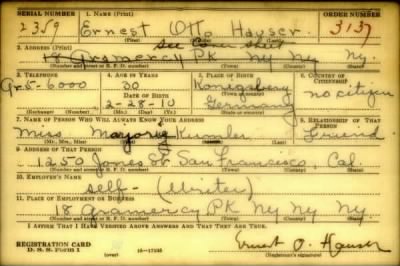 SERIAL NUMBER 1. NAME (Print) ORDER NUMBER
2359 Ernest Otto Hauser 3137
(First) (Middle) (Last)
see cover sheet
2. ADDRESS (Print)
18 Gramercy PK Ny Ny Ny.
(Number and street or R. F. D. number) (Town) (County) (State)
3. TELEPHONE 4. AGE IN YEARS 5. PLACE OF BIRTH 6. COUNTRY OF CITIZENSHIP
Gr 5-6000 30 Germany no citizen
DATE OF BIRTH
2-28-10
(Exchange) (Number) (Mo.) (Day) (Yr.) (State or country)
7. NAME OF PERSON WHO WILL ALWAYS KNOW YOUR ADDRESS 8. RELATIONSHIP OF THAT PERSON
Miss Friend
(Mr., Mrs., Miss) (First) (Middle) (Last)
9. ADDRESS OF THAT PERSON
1250 Jones St San Francisco Cal.
(Number and street or R. F. D. number) (Town) (County) (State)
10. EMPLOYER'S NAME
self- (Writer)
11. PLACE OF EMPLOYMENT OR BUSINESS
18 Gramercy PK Ny Ny Ny.
(Number and street or R. F. D. number) (Town) (County) (State)
I AFFIRM THAT I HAVE VERIFIED ABOVE ANSWERS AND THAT THEY ARE TRUE.
REGISTRATION CARD
D. S. S. Form 1 (over) Ernest O. Hauser
(Registrant's signature)